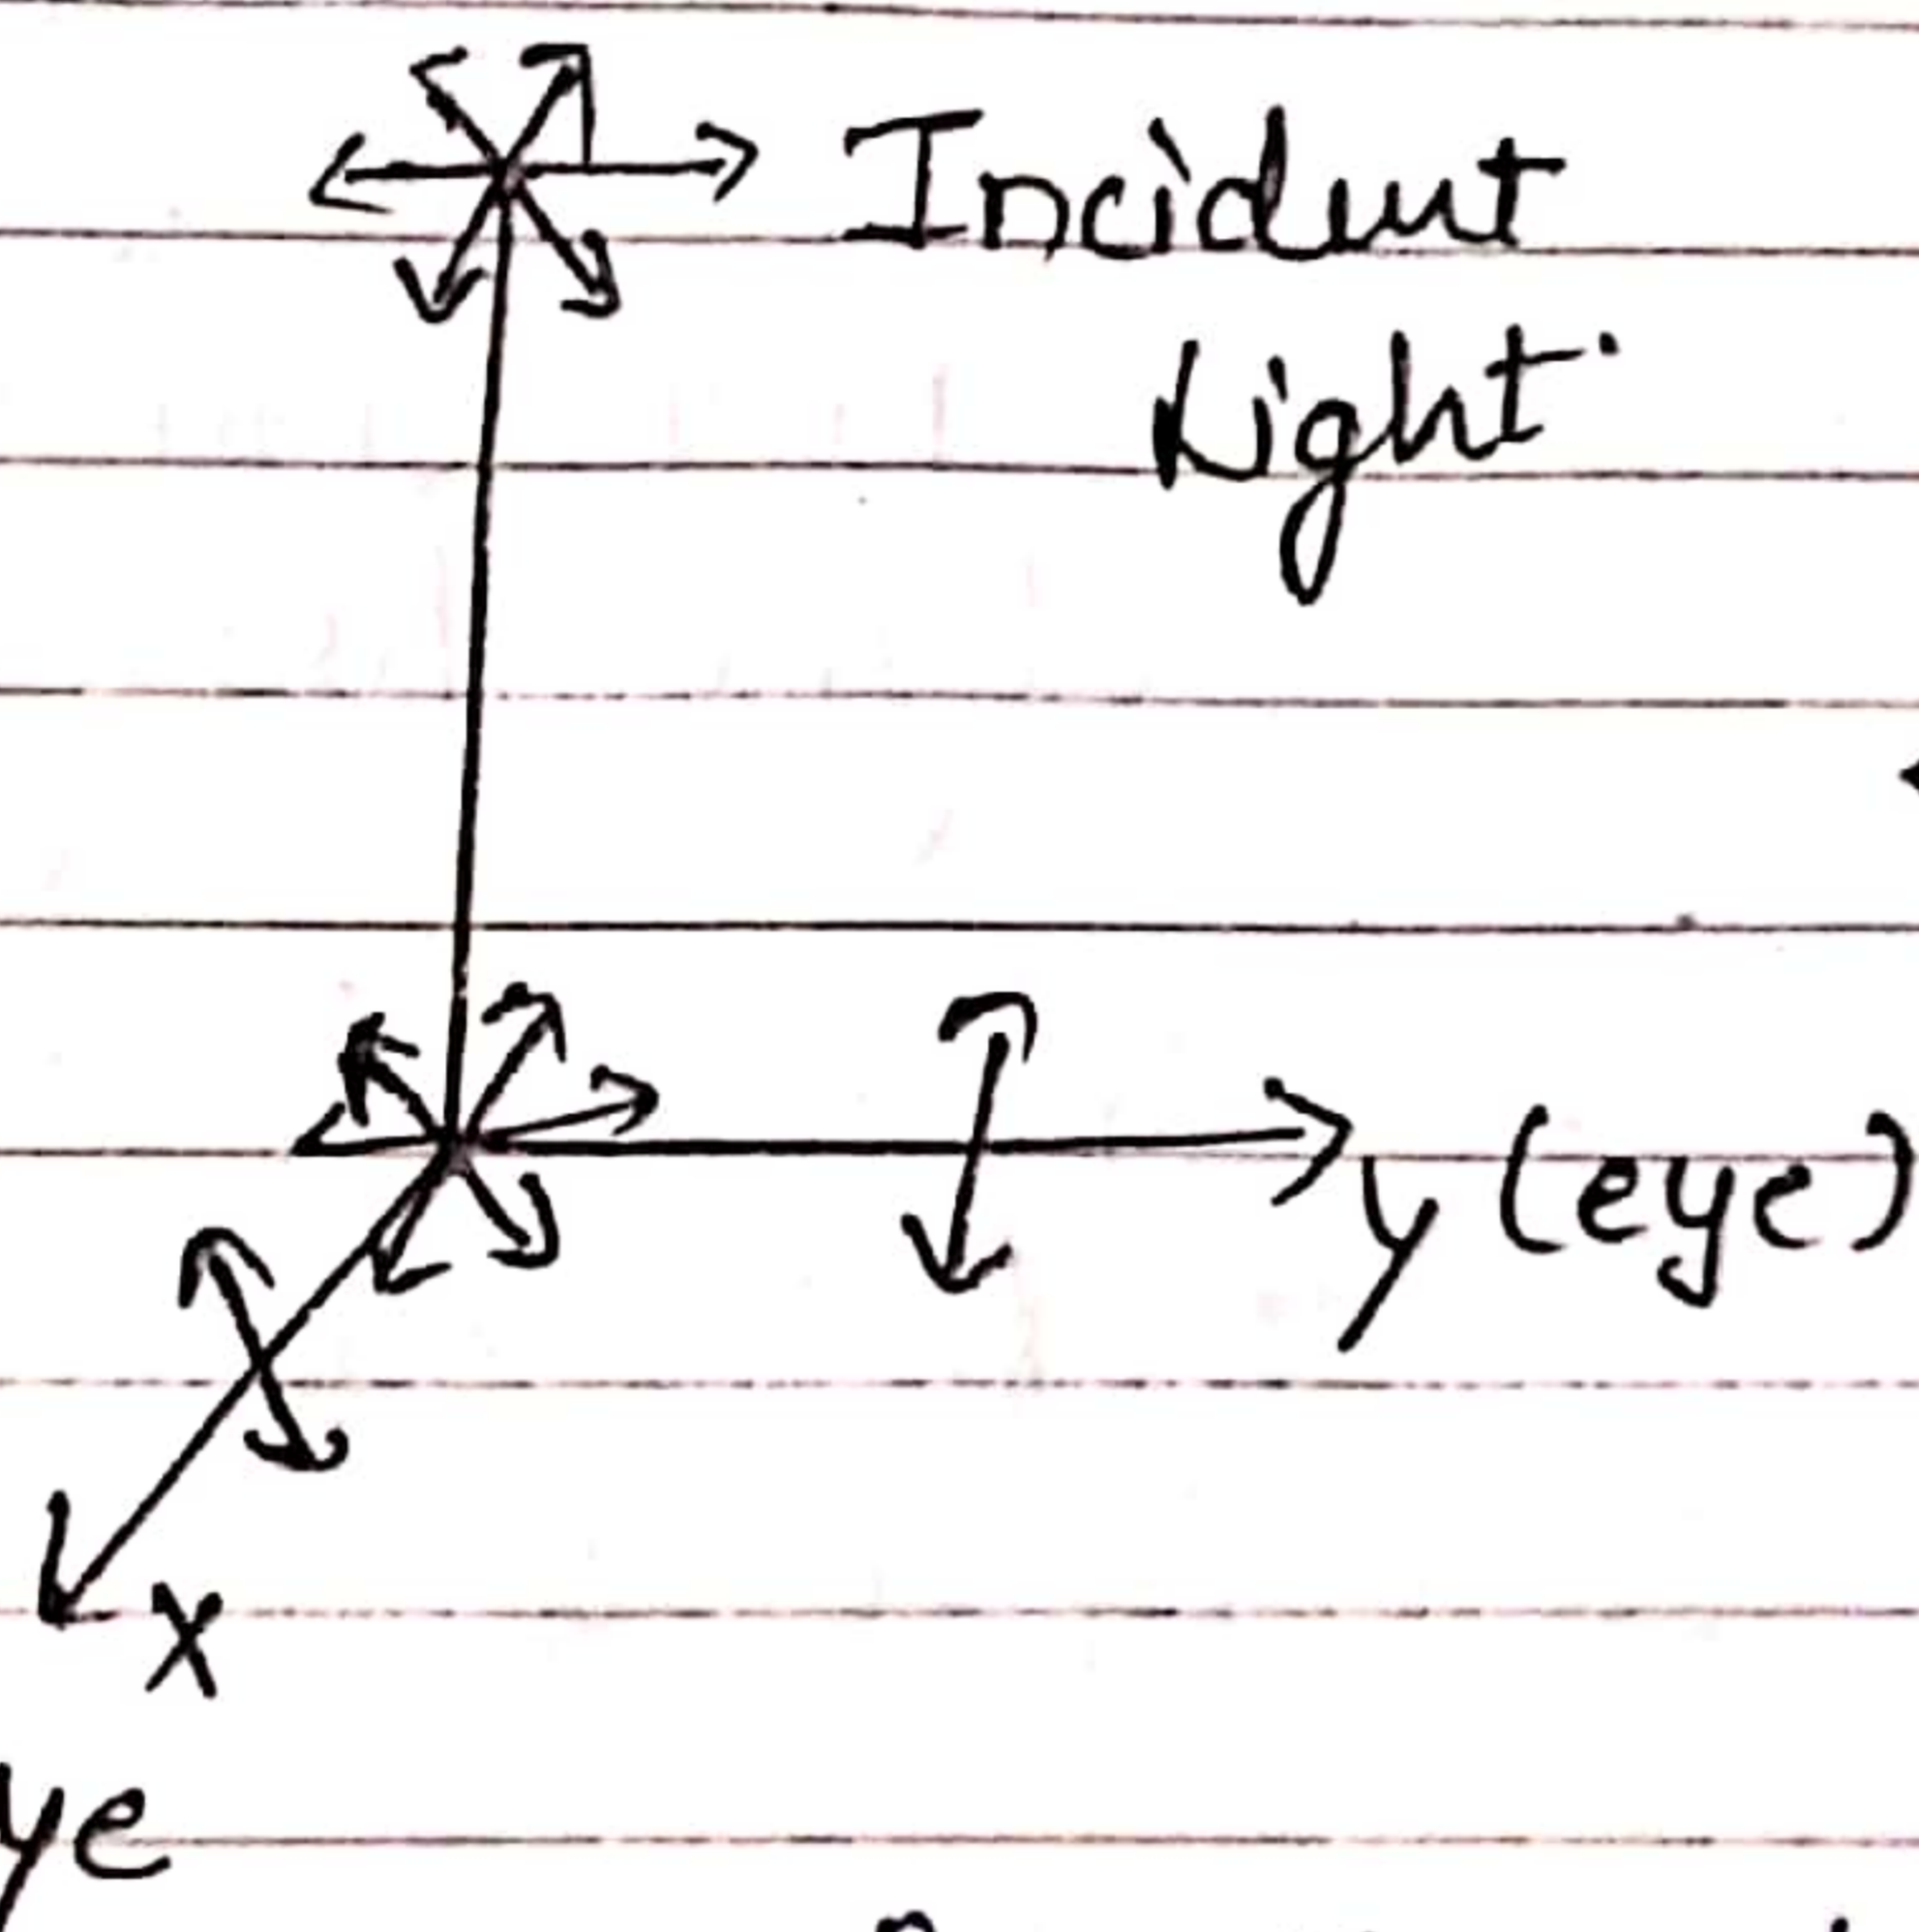 Incident
Light
y (eye)
x
ye